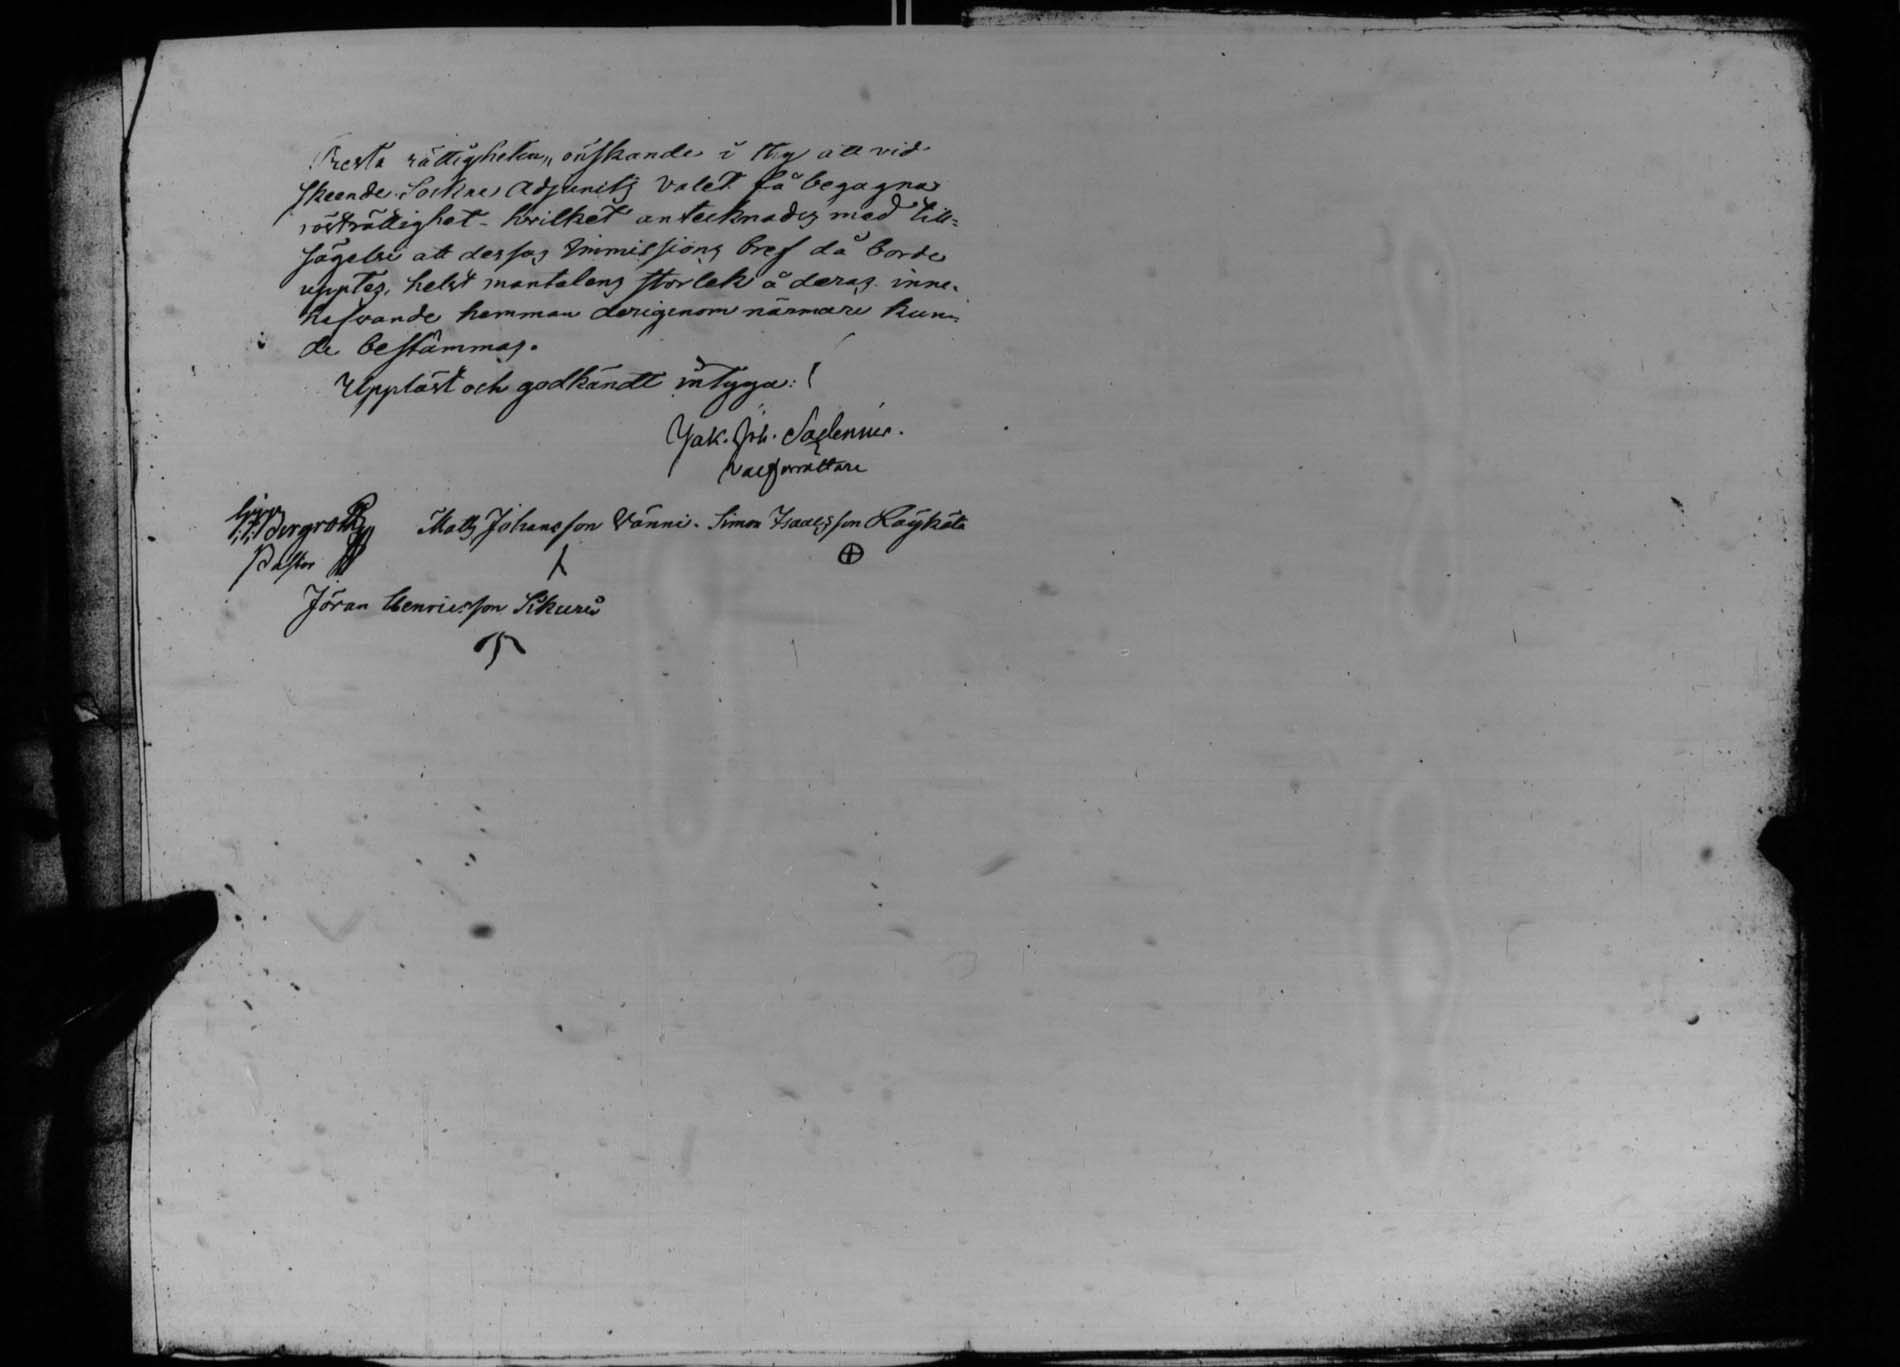 Presta rättigheten, önskande i thy att vid
skeende Sockne Adjuncts valet få begagna
rösträttighet - hvilket antecknades med till-
sägelse att dessas Immissions bref då borde
upptes, helst mantalens storlek å deras inne-
hafvande hemman derigenom närmare kun-
de bestämmas.
Uppläst och godkändt intyga:
Jak. Joh.
Valförrättare
Bergroth Matts Johansson Vänni. Simon Isaacsson
Pastor
Jöran Henricsson